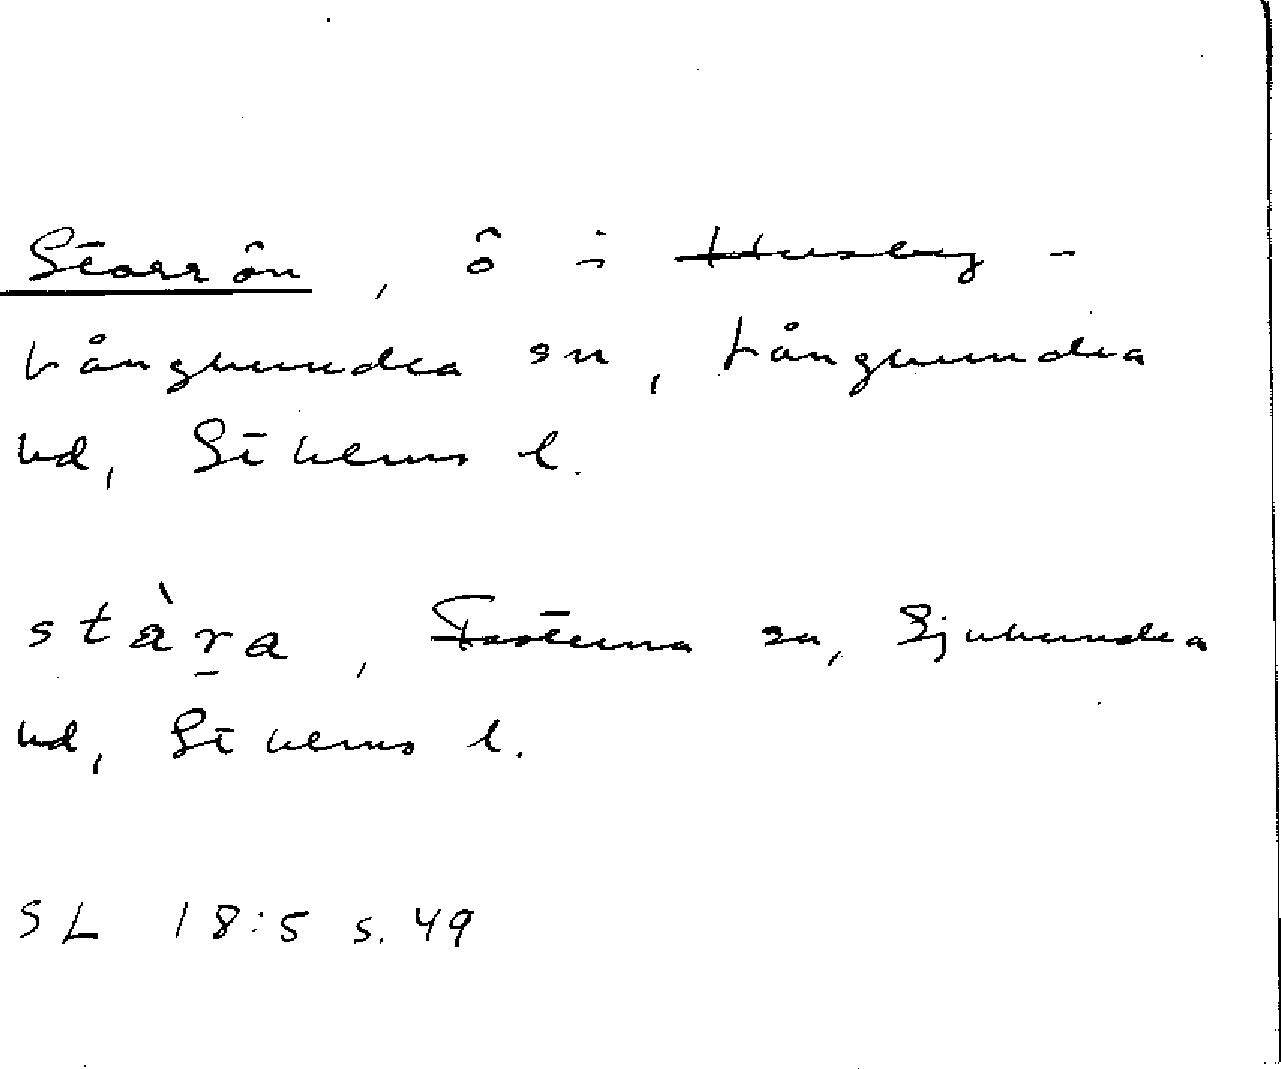 Starrön, ö i Husby-
Långhundra sn, Långhundra
hd, Sthlms l.
stàr̠a, Fasterna sn, Sjuhundra
hd, Sthlms l.
SL 18:5 s. 49